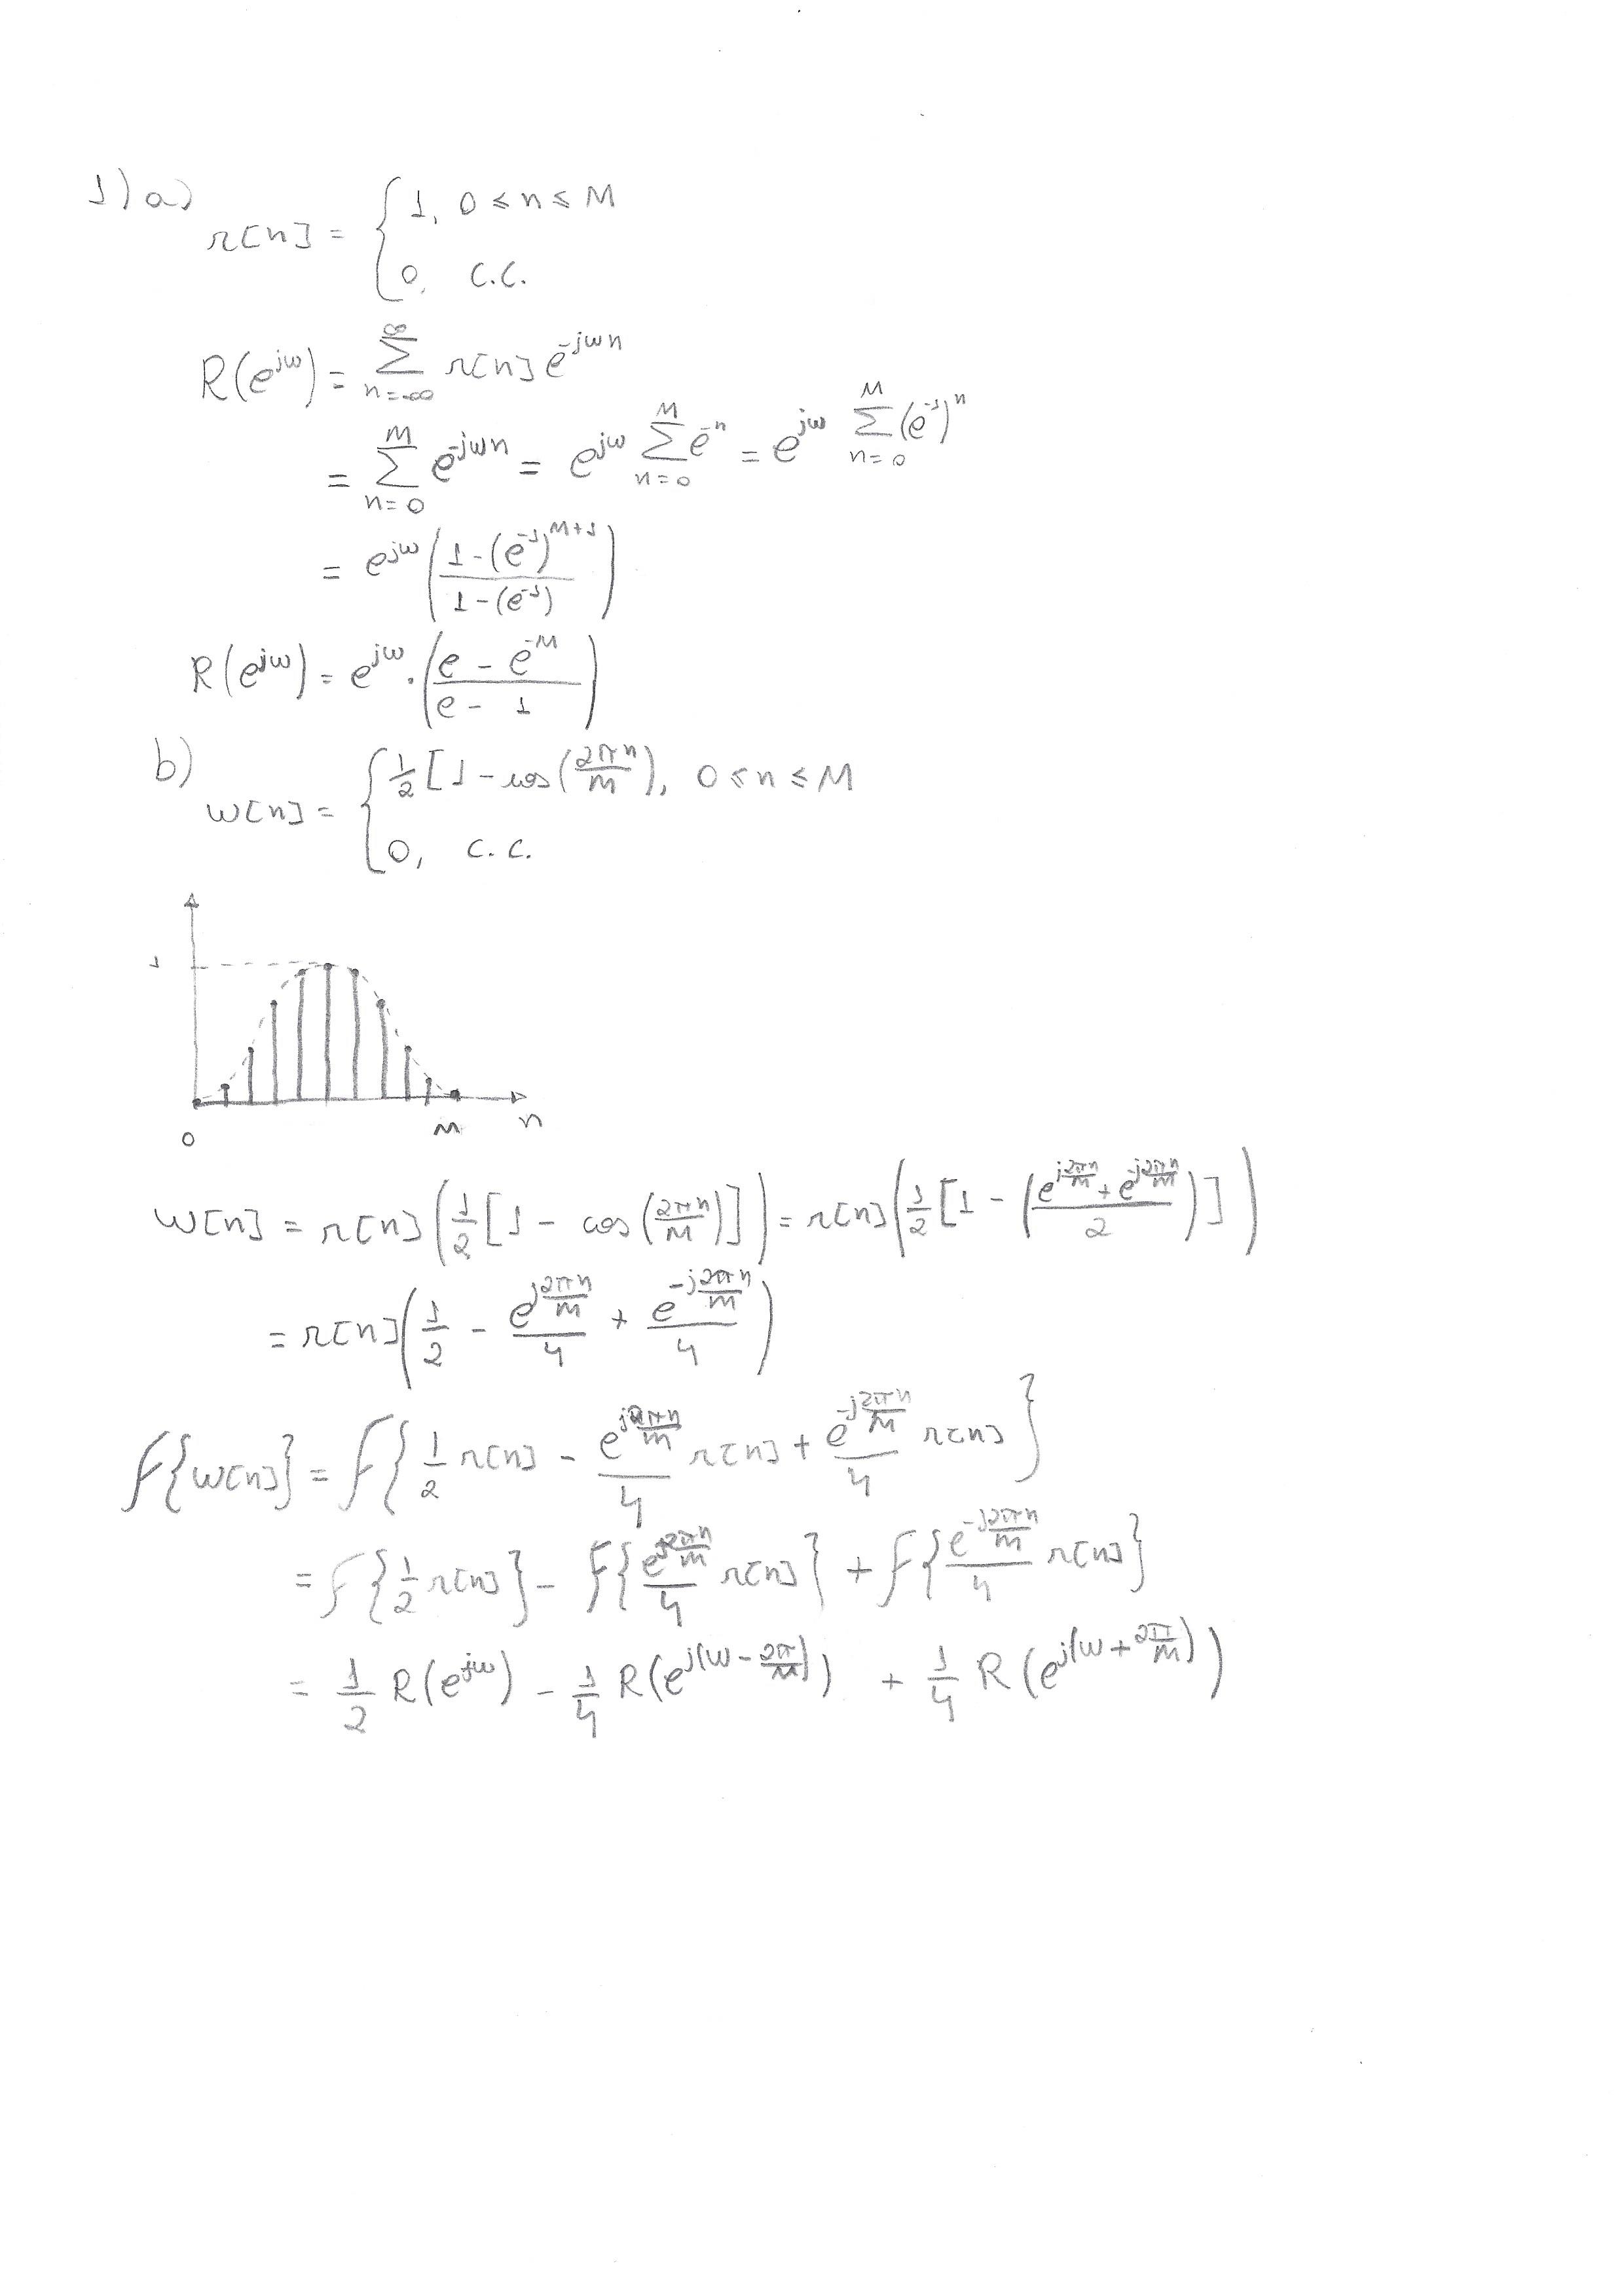 1) a)
r[n] = { 1, 0 ≤ n ≤ M
0, c.c.
R(e^{jω}) = ∑_{n=-∞}^{∞} r[n] e^{-jωn}
= ∑_{n=0}^{M} e^{-jωn} = e^{jω} ∑_{n=0}^{M} e^{-n} = e^{jω} ∑_{n=0}^{M} (e^{-1})^n
= e^{jω} ( (1-(e^{-1})^{M+1}) / (1-(e^{-1})) )
R(e^{jω}) = e^{jω} · ( (e - e^{-M}) / (e - 1) )
b)
w[n] = { 1/2 [1 - cos(2πn/M), 0 ≤ n ≤ M
0, c.c.
1
0 M n
w[n] = r[n] ( 1/2 [1 - cos(2πn/M)] ) = r[n] ( 1/2 [1 - ( (e^{j2πn/M} + e^{-j2πn/M}) / 2 )] )
= r[n] ( 1/2 - e^{j2πn/M}/4 + e^{-j2πn/M}/4 )
F{w[n]} = F{ 1/2 r[n] - e^{j2πn/M}/4 r[n] + e^{-j2πn/M}/4 r[n] }
= F{ 1/2 r[n] } - F{ e^{j2πn/M}/4 r[n] } + F{ e^{-j2πn/M}/4 r[n] }
= 1/2 R(e^{jω}) - 1/4 R(e^{j(ω - 2π/M)}) + 1/4 R(e^{j(ω + 2π/M)})